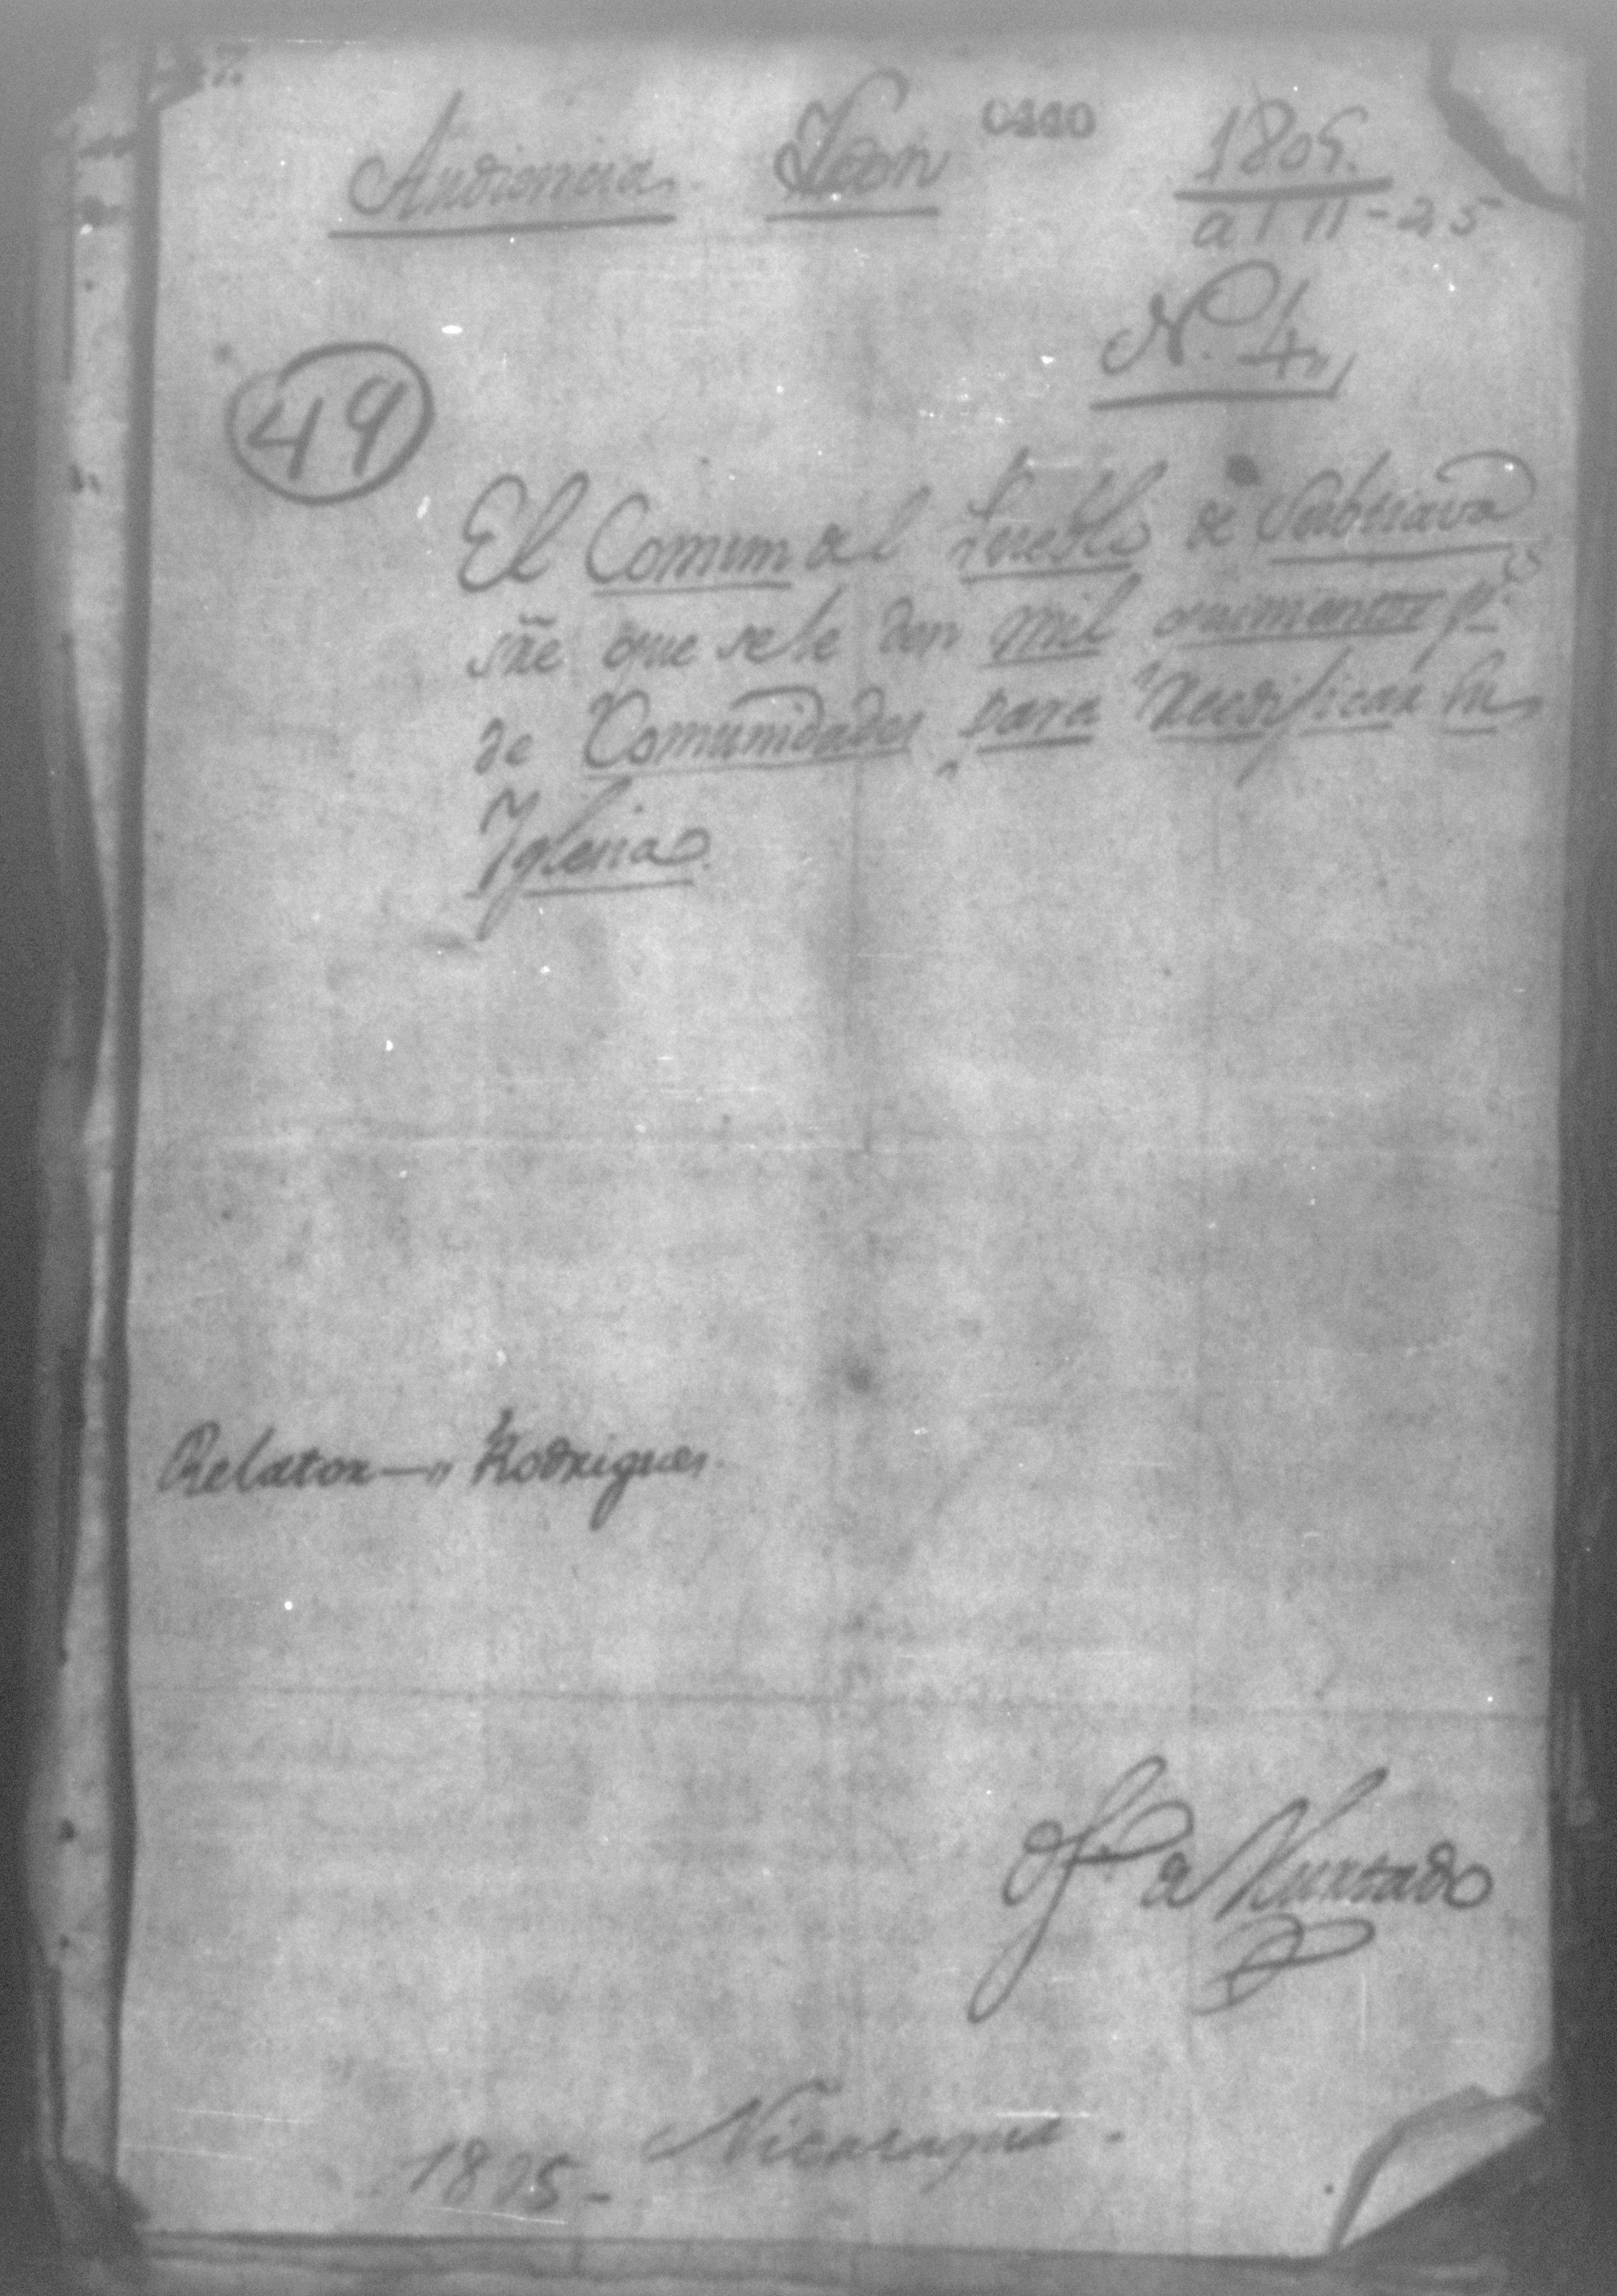 Audiencia. Leon 0440 1805.
a 1 11-25
N. 4,,
49
El Comun del Pueblo de Subtiava
sñe que se le den mil quinientos p.s
de Comunidades para Reedificar su
Yglesia
Relator—,, Rodriguez.
Of.o de Hurtado
1805- Nicaragua.